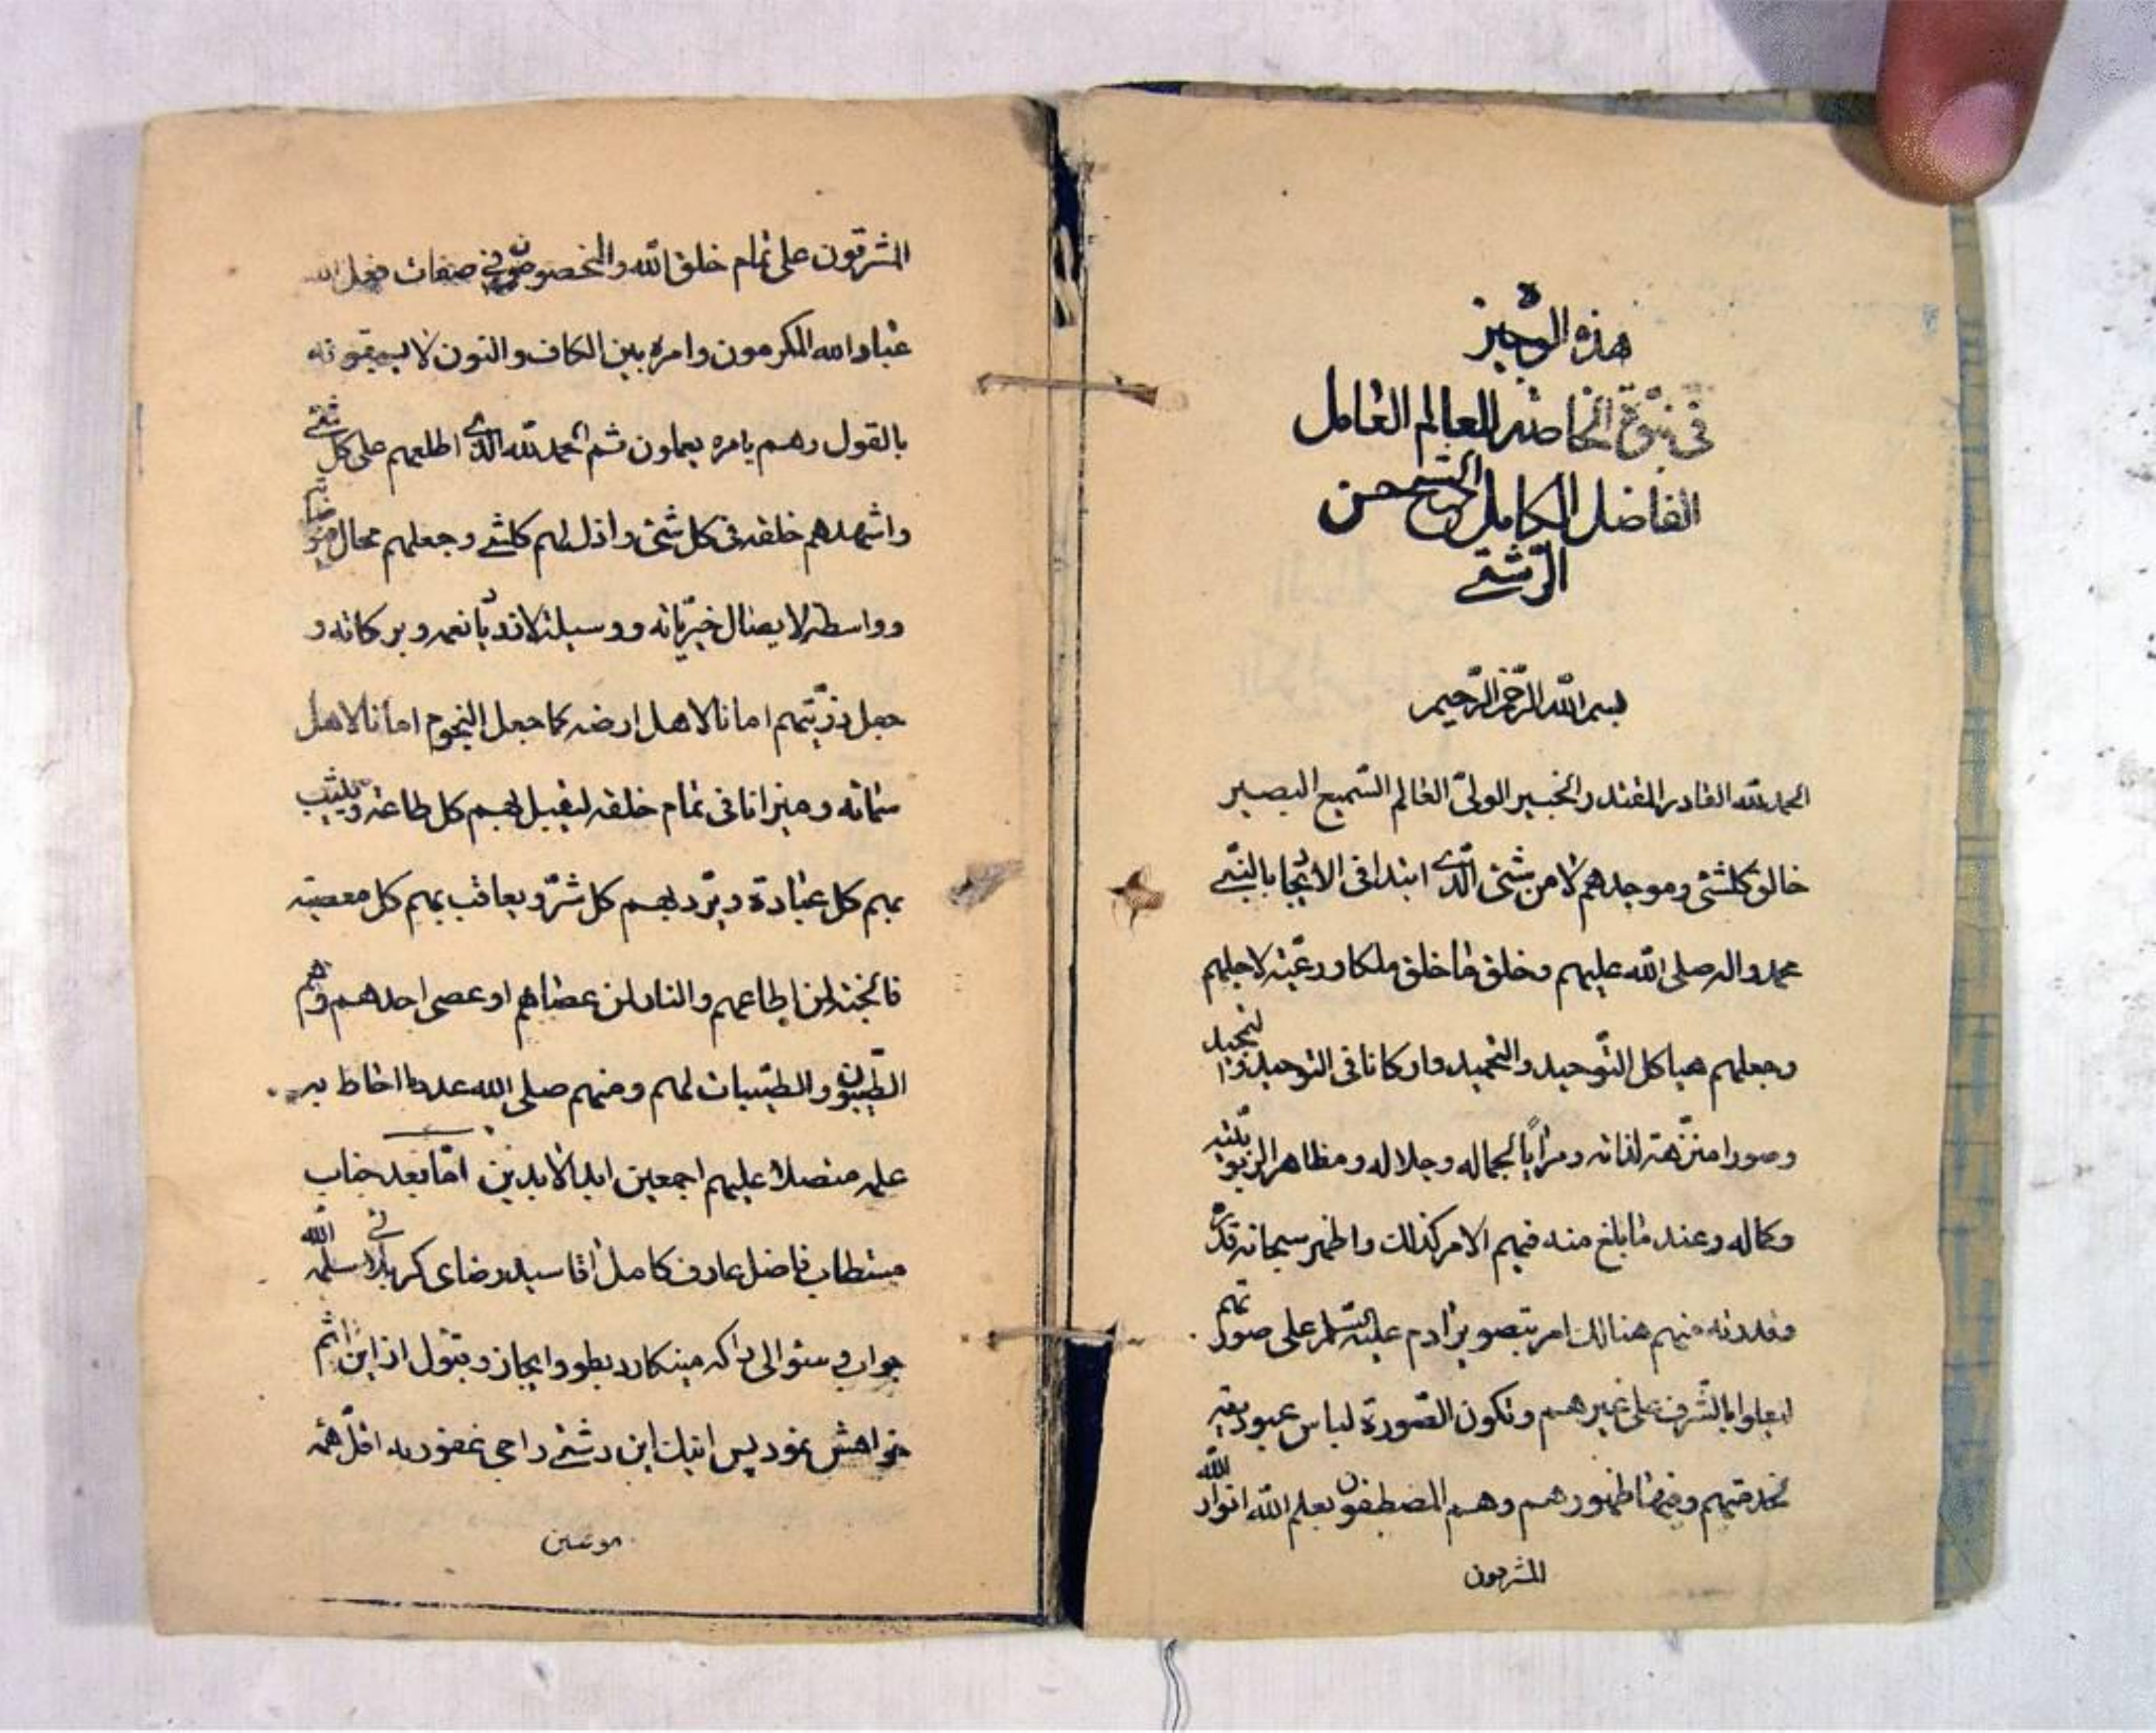 هذه الوجيزة
فی نبوّة الخاصّه للعالم العامل
الفاضل الکامل الشیخ حسن
الرّشتے
بسم اللّه الرّحمن الرّحیم
الحمد للّه القادر المقتدر الخبیر الولیّ العالم السّمیع البصیر
خالق کلشئ وموجدهم لا من شئ الّذے ابتدا فی الایجاد بالنّبے
محمد واله صلی اللّه علیهم وخلق ما خلق ملکا ورعیّته لاجلهم
وجعلهم هیاکل التّوحید والتحمید وارکانا فی التوحید والتمجید
وصورا منزّهة لذاته ومرایًا لجماله وجلاله ومظاهر الربوبیّته
وکماله وعند ما بلغ منه فیهم الامر کذلک واظهر سبحانه قدره
وقدرته فیهم هنالک امر بتصویر ادم علیه السّلم علی صورتهم
لیعلوا بالشّرف علی غیرهم وتکون الصّورة لباس عبودیّته
لخدمتهم وفیها ظهورهم وهم المصطفون بعلم اللّه انوار اللّه
المشرقون
المشرقون علی تمام خلق اللّه والمخصوصون فی صفات فعل اللّه
عباد الله المکرمون وامره بین الکاف والنون لا یسبقونه
بالقول وهم بامره یعملون ثم الحمد للّه الّذے اطلعهم علی کل شئے
واشهدهم خلقه فی کل شئ واذل لهم کلشئے وجعلهم محال
وواسطة لایصال خیراته ووسیلة لازدیاد نعمه وبرکاته و
جعل ذرّیتهم امانا لاهل ارضه کما جعل النجوم امانا لاهل
سمائه ومیزانا فی تمام خلقه لیقبل بهم کل طاعته ویثیب
بهم کل عبادة ویرّد بهم کل شرّ ویعاقب بهم کل معصیته
فالجنة لمن اطاعهم والنار لمن عصاهم او عصی احدهم وهم
الطّیبون والطّیبات لهم ومنهم صلی الله عدد ما احاط به
علمه متصلا علیهم اجمعین ابد الابدین امّا بعد جناب
مستطاب فاضل عارف کامل اقا سید رضای کربلائے سلمه اللّه
جواب سئوالی را که مینکارد بطور ایجاز وقبول از این اثم
خواهش نمود پس اینک این رشتے راجی غفور به اقلّ همّه